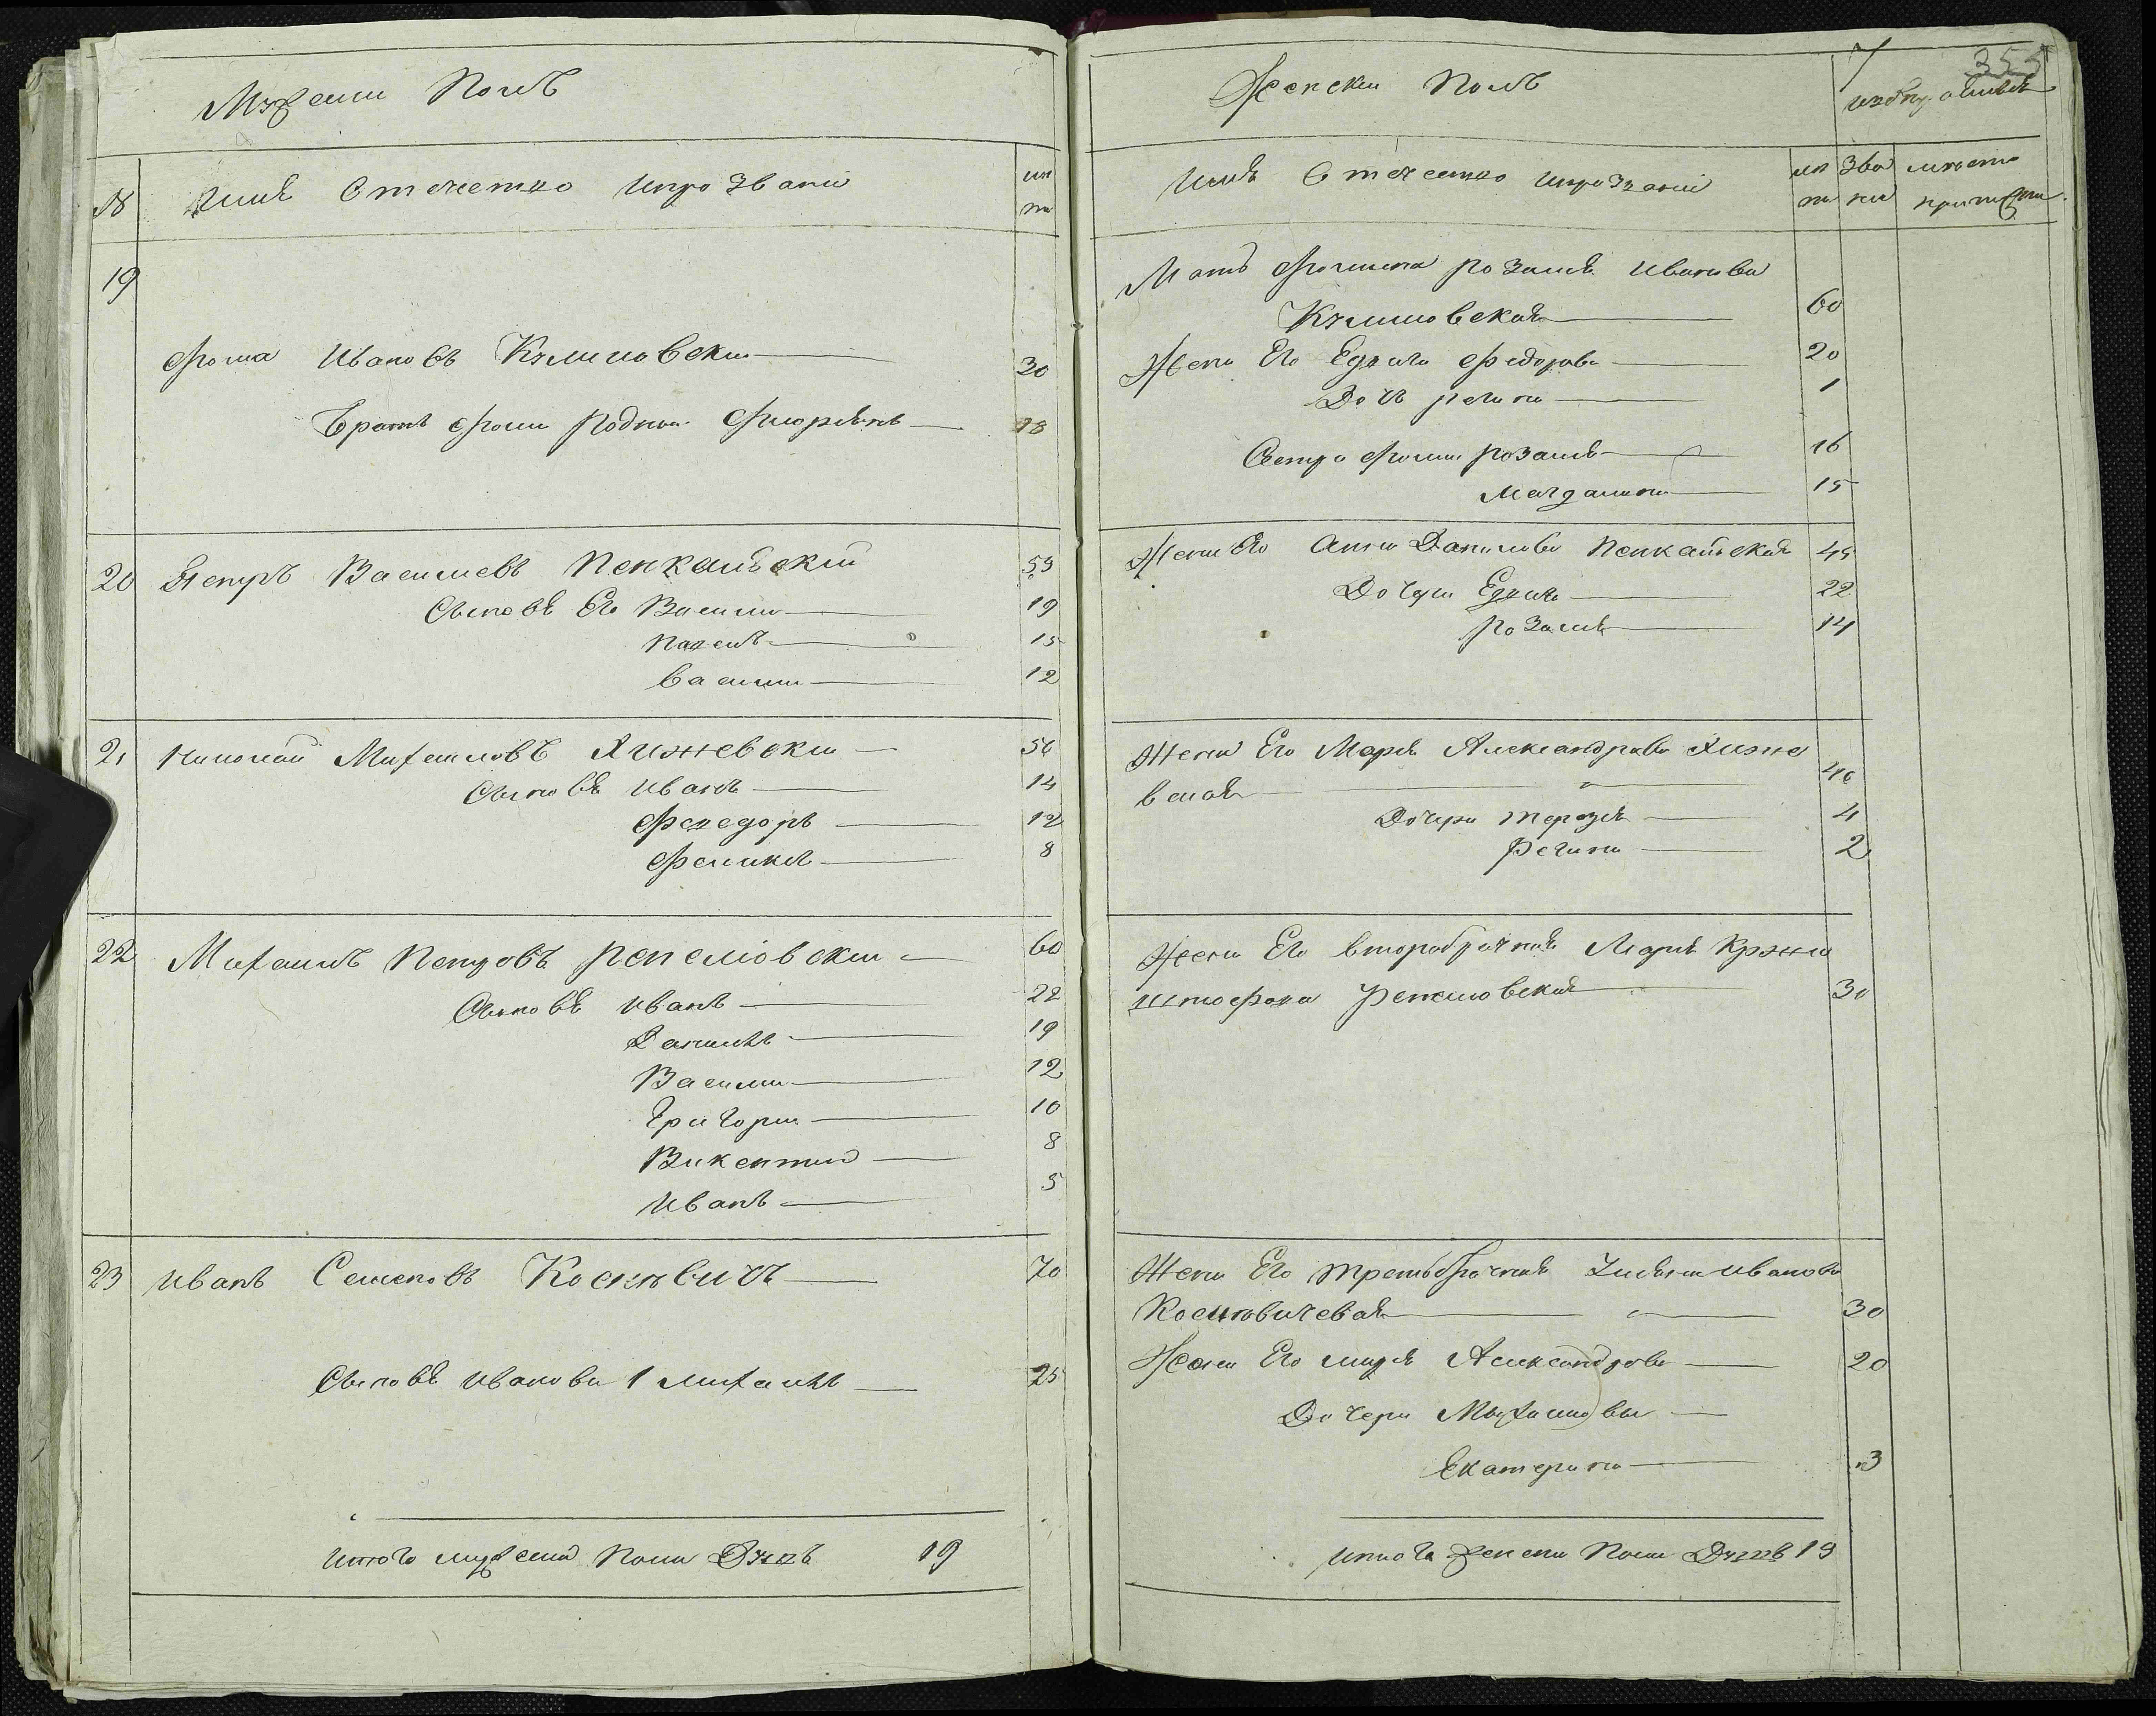 Мужески Полъ
№ Имя Отечество ипрозвание
19
Фома Ивановъ Кулиновски 30
Братъ Фомы Родной Флориянъ 18
20 Петръ Васильевъ Пенкальский 59
Сыновѣ Его Василии 19
Павелъ 15
Василии 12
21 Николай Михаиловъ Хижневски 56
Сыновѣ Иванъ 14
Феледоръ 12
Феликсъ 8
22 Михаилъ Петровъ Репеловски 60
Сыновѣ Иванъ 22
Данило 19
Василии 12
Григории 10
Викентии 8
Иванъ 5
23 Иванъ Семеновъ Коснѣвичъ 70
Сыновѣ Иванова 1 Михаилъ 25
Итого мужеска Пола Душъ 19
Женски Полъ
7
355
Имя Отечество ипрозвание лѣ та Зва ние место
Мать Фомина Розалия Иванова
Кулиновская 60
Жена Его Едвига Федорова 20
Дочь Регина 1
Сестра Фомы Розалия 16
Магдалина 15
Жена Его Анна Данилова Пенкальская 45
Дочери Едвига 22
Розалия 14
Жена Его Марья Александрова Хижне
вская 46
Дочери Терезия 4
Регина 2
Жена Его второбрачная Марья Кржи
штофова Репеловская 30
Жена Его третьобрачная Улияна Иванова
Коснѣвичевая 30
Жена Его Марья Александрова 20
Дочери Михаиловы
Екатерина 3
Итого Женска Пола Душъ 19